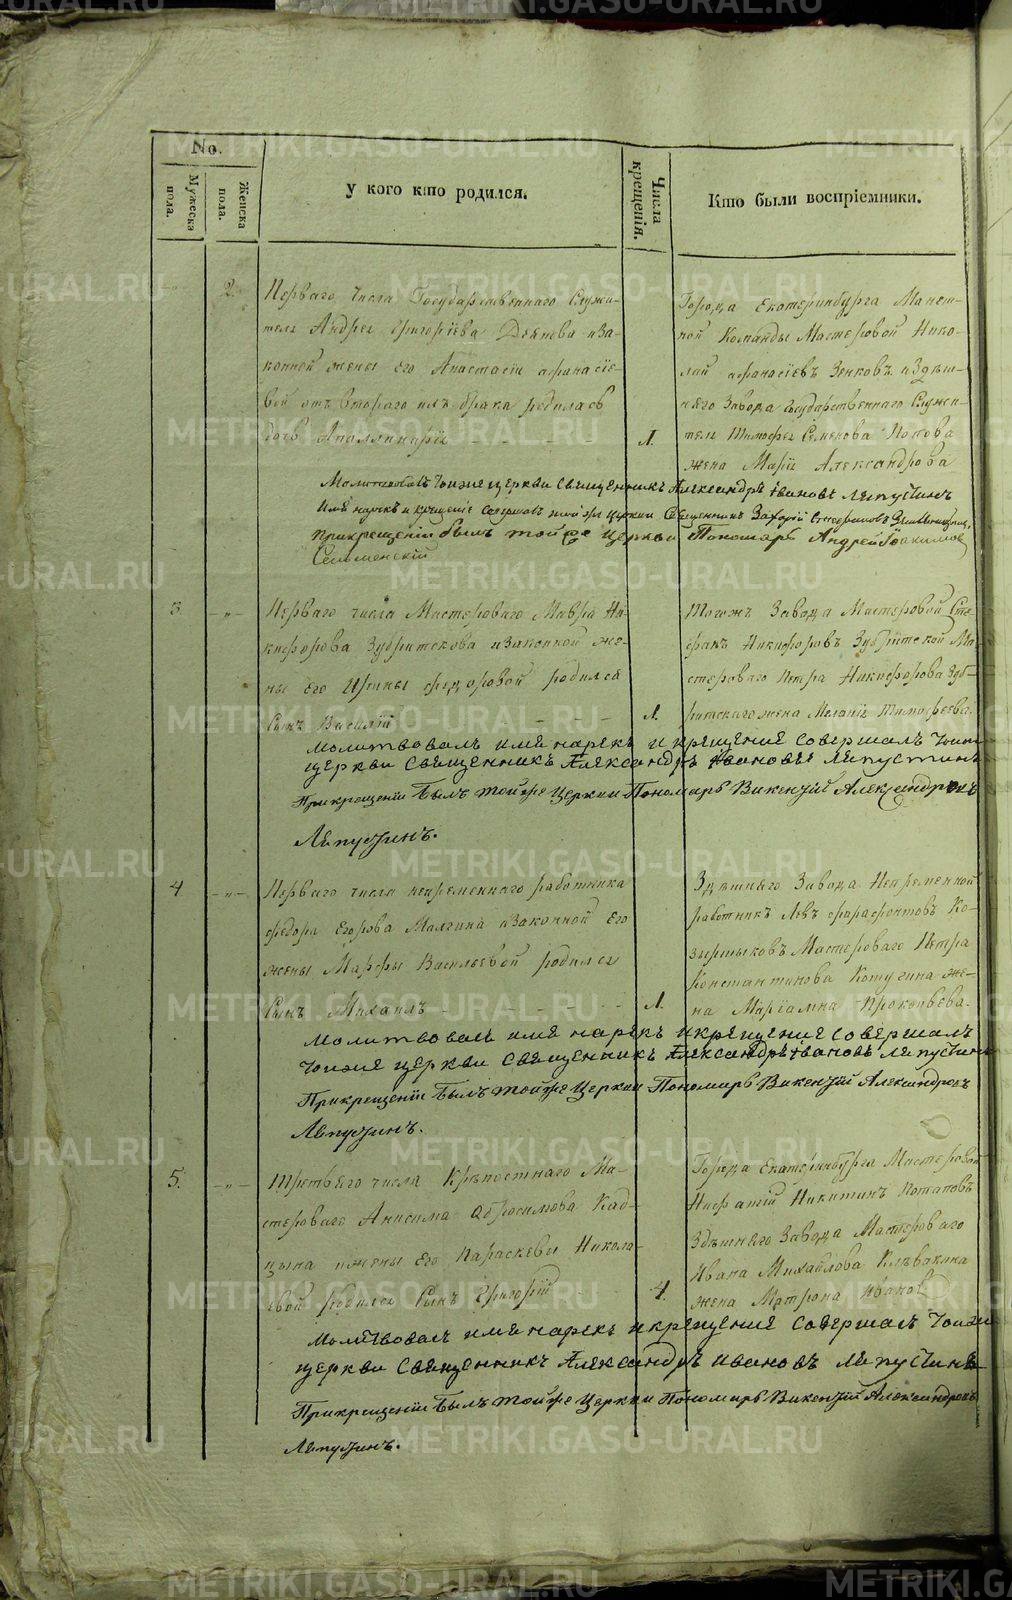 METRIKI.GASO-URAL.RU
No.
Мужеска пола.
Женска пола.
У кого кто родился.
Числа крещенія.
Кто были воспріемники.
2.
Перваго числа Государственнаго Служи-
теля Андрея Григоріева Деянова и за-
конной жены его Анастасіи Афанасіе-
вой отъ втораго ихъ брака родилась
дочь Аполлинарія
Города Екатеринбурга Манет-
ной Команды Мастеровой Нико-
лай Афанасіевъ Зенковъ и здѣш-
няго Завода Государственнаго Служи-
теля Тимофея Семенова Попова
жена Марія Александрова
Молитвовалъ тоижеи церкви Священникъ Александръ Ивановъ Ляпустинъ
Имя нарекъ и крещеніе совершалъ той же церкви Священникъ Захорій Стефановъ
Прикрещеніи былъ той же церкви Пономарь Андрей Іоакимов
Сельменскій
3.
Перваго числа Мастероваго Мавра Ни-
кифорова Зубритскова и законной же-
ны его Ирины Федоровой родился
Сынъ Василій
Тогожъ Завода Мастеровой Сте-
фанъ Никифоровъ Зубритской Ма-
стероваго Петра Никифорова Зуб-
ритскаго жена Меланія Тимофеева.
Молитвовалъ имя нарекъ и крещение совершалъ тоиже
церкви Священникъ Александръ Ивановъ Ляпустинъ
Прикрещеніи былъ той же Церкви Пономарь Викентій Александровъ
Ляпустинъ.
4
Перваго числа непременнаго работника
Федора Егорова Малгина и законной его
жены Марфы Васильевой родился
Сынъ Михаилъ
Здѣшняго Завода Непременной
работникъ Левъ Фарафонтовъ Ко-
зырщиковъ Мастероваго Петра
Константинова Котугина же-
на Маріамна Прокопьева.
Молитвовалъ имя нарекъ и крещение совершалъ
тоижеи церкви Священникъ Александръ Ивановъ Ляпустинъ
Прикрещеніи былъ той же Церкви Пономарь Викентій Александровъ
Ляпустинъ.
5.
Третьяго числа Крѣпостнаго Ма-
стероваго Анисима Абросимова Кад-
цына и жены его Параскевы Никола-
евой родился Сынъ Григорій
4.
Города Екатеринбурга Мастеровой
Никитинъ Потаповъ
Здѣшняго Завода Мастероваго
Ивана Михайлова Клѣвакина
жена Матрона Иванов
Молитвовалъ имя нарекъ и крещение совершалъ тоиже
церкви Священникъ Александръ Ивановъ Ляпустинъ
Прикрещеніи былъ той же Церкви Пономарь Викентій Александровъ
Ляпустинъ.